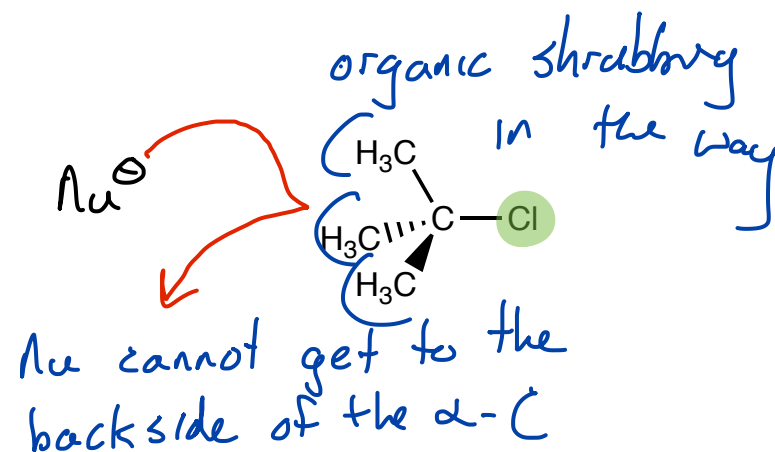 organic shrubbery
in the way
H₃C
Nu⊖
C Cl
H₃C
H₃C
Nu cannot get to the
backside of the α-C